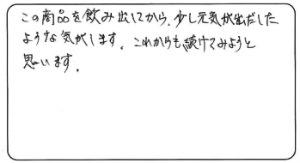 この商品を飲み出してから、少し元気が出だした
ような気がします。これからも続けてみようと
思います。